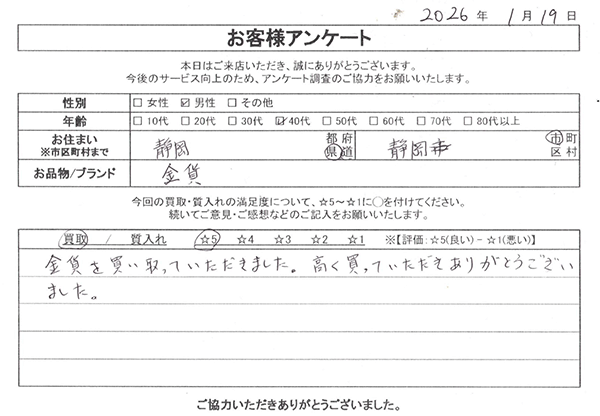 2026年 1月19日
お客様アンケート
本日はご来店いただき、誠にありがとうございます。
今後のサービス向上のため、アンケート調査のご協力をお願いいたします。
性別 □女性 ☑男性 □その他
年齢 □10代 □20代 □30代 ☑40代 □50代 □60代 □70代 □80代以上
お住まい ※市区町村まで 静岡 都府県道 静岡市 市町区村
お品物/ブランド 金貨
今回の買取・質入れの満足度について、☆5～☆1に◯を付けてください。
続いてご意見・ご感想などのご記入をお願いいたします。
買取 / 質入れ ☆5 ☆4 ☆3 ☆2 ☆1 ※【評価:☆5(良い)－☆1(悪い)】
金貨を買い取っていただきました。高く買っていただきありがとうござい
ました。
ご協力いただきありがとうございました。